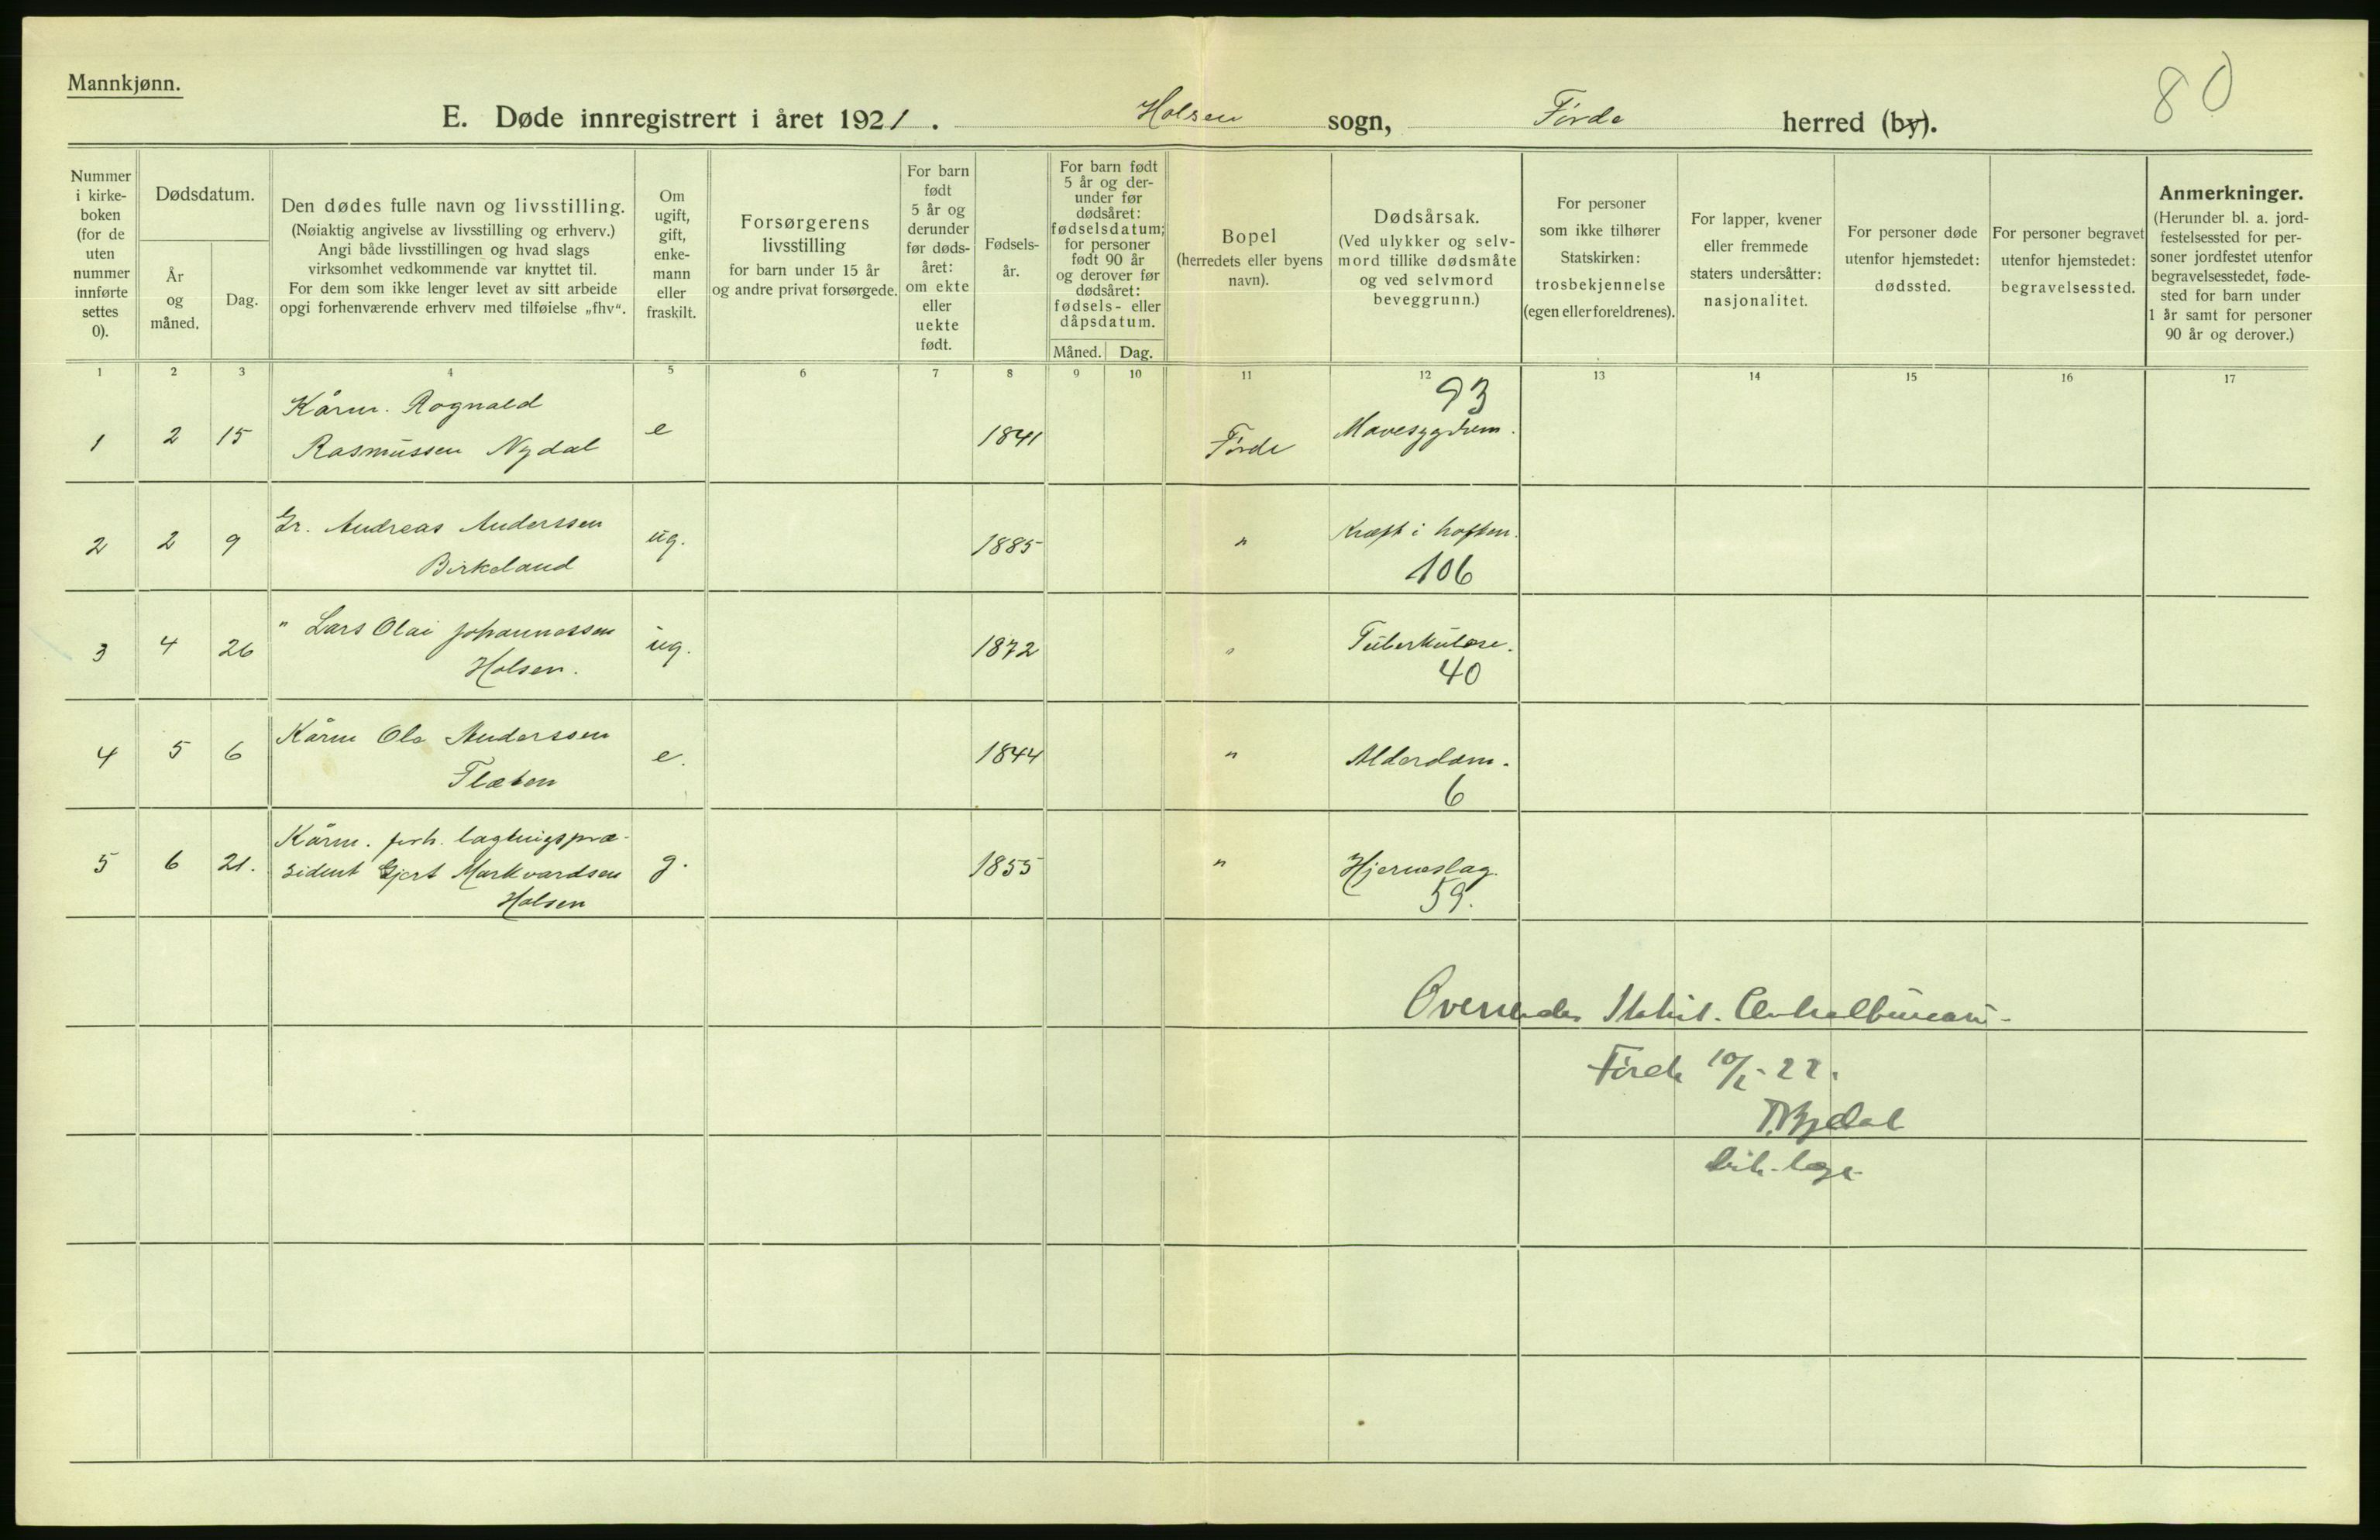 Mannkjønn.
80
E. Døde innregistrert i året 1921. Holsen sogn, Førde herred (by).
Nummer i kirke-boken (for de uten nummer innførte settes 0).
Dødsdatum.
År og måned.
Dag.
Den dødes fulle navn og livsstilling.
(Nøiaktig angivelse av livsstilling og erhverv.)
Angi både livsstillingen og hvad slags
virksomhet vedkommende var knyttet til.
For dem som ikke lenger levet av sitt arbeide
opgi forhenværende erhverv med tilføielse „fhv“.
Om ugift, gift, enke-mann eller fraskilt.
Forsørgerens
livsstilling
for barn under 15 år
og andre privat forsørgede.
For barn født 5 år og derunder før døds-året: om ekte eller uekte født.
Fødsels-år.
For barn født
5 år og der-
under før
dødsåret:
fødselsdatum;
for personer
født 90 år
og derover før
dødsåret:
fødsels- eller
dåpsdatum.
Måned. Dag.
Bopel
(herredets eller byens
navn).
Dødsårsak.
(Ved ulykker og selv-
mord tillike dødsmåte
og ved selvmord
beveggrunn.)
For personer
som ikke tilhører
Statskirken:
trosbekjennelse
(egen eller foreldrenes).
For lapper, kvener
eller fremmede
staters undersåtter:
nasjonalitet.
For personer døde
utenfor hjemstedet:
dødssted.
For personer begravet
utenfor hjemstedet:
begravelsessted.
Anmerkninger.
(Herunder bl. a. jord-
festelsessted for per-
soner jordfestet utenfor
begravelsesstedet, føde-
sted for barn under
1 år samt for personer
90 år og derover.)
1 2 3 4 5 6 7 8 9 10 11 12 13 14 15 16 17
93
1 2 15 Kårm. Rognald
Rasmussen Nydal e 1841 Førde Mavesygdom.
2 2 9 Gr. Andreas Anderssen
Birkeland ug. 1885 " Kræft i hoften.
106
3 4 26 " Lars Olai Johannessen
Holsen. ug. 1872 " Tuberkulose.
40
4 5 6 Kårm Ole Anderssen
Flæten e. 1844 " Alderdom.
6
5 6 21. Kårm. forh. lagtingspræ-
sident Gjert Markvardsen
Holsen g. 1855 " Hjerneslag.
59.
Oversendes Statist. Centralbureau.
Førde 10/1-22.